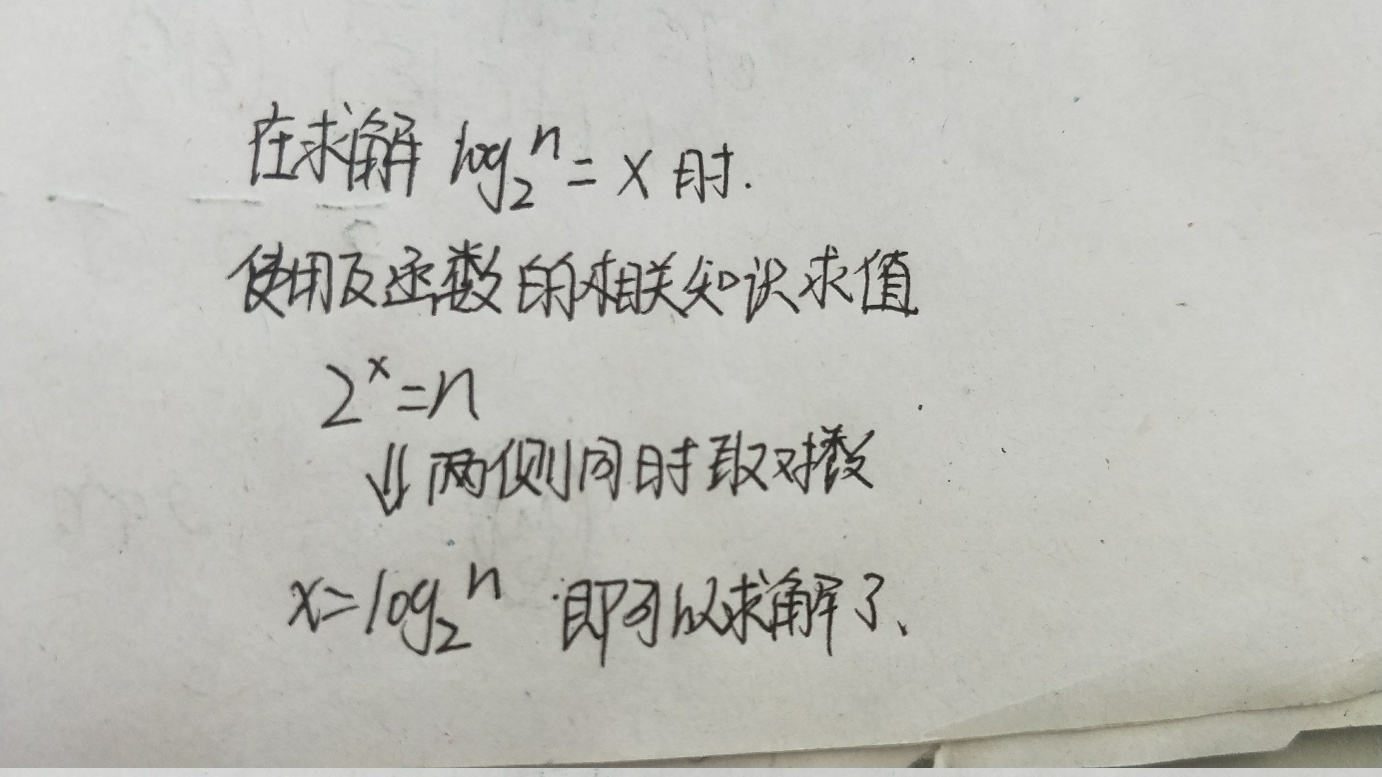 在求解 log₂ⁿ = x 时.
使用反函数的相关知识求值
2ˣ=n
⇓ 两侧同时取对数
x=log₂ⁿ 即可以求解了、